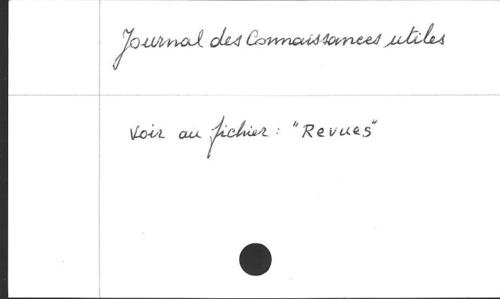 Journal des Connaissances utiles
Voir au fichier : "Revues"